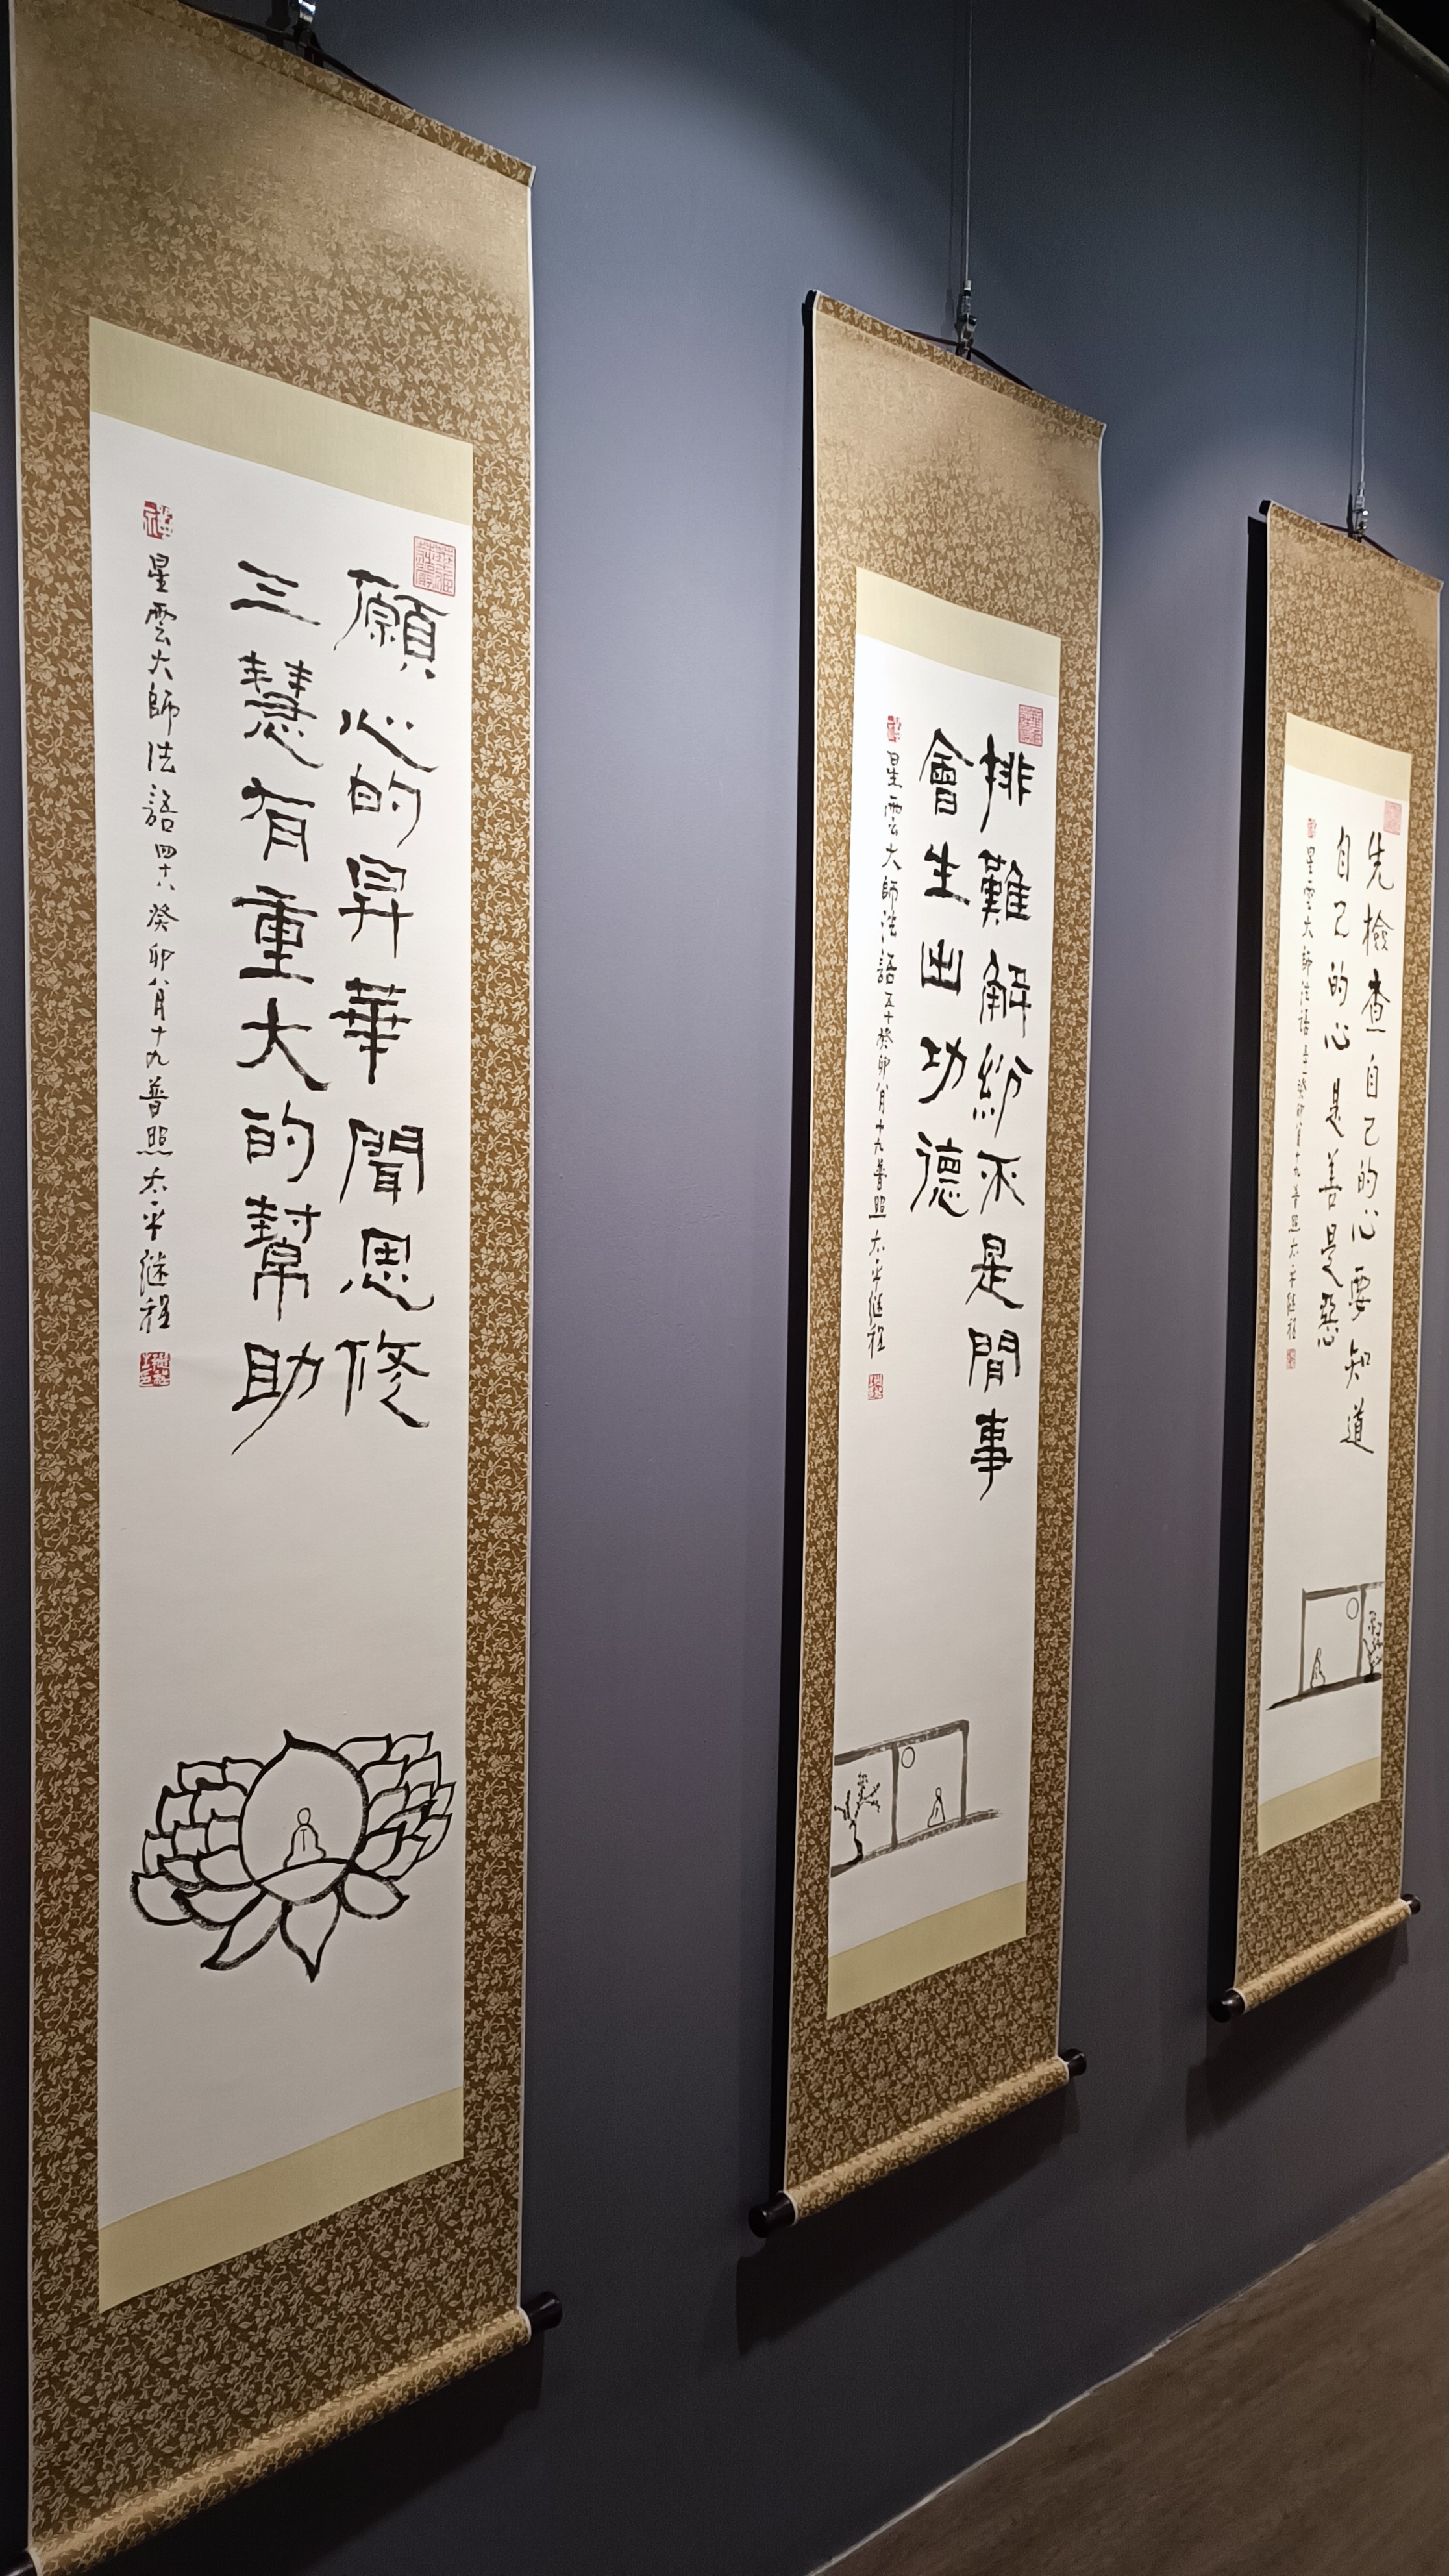 願心的昇華聞思修
三慧有重大的幫助
星雲大師法語四十八癸卯八月十九普照太平继程
排難解紛不是閒事
會生出功德
星雲大師法語五十癸卯八月十九普照太平继程
先檢查自己的心要知道
自己的心是善是惡
星雲大師法語五一癸卯八月十九普照太平继程